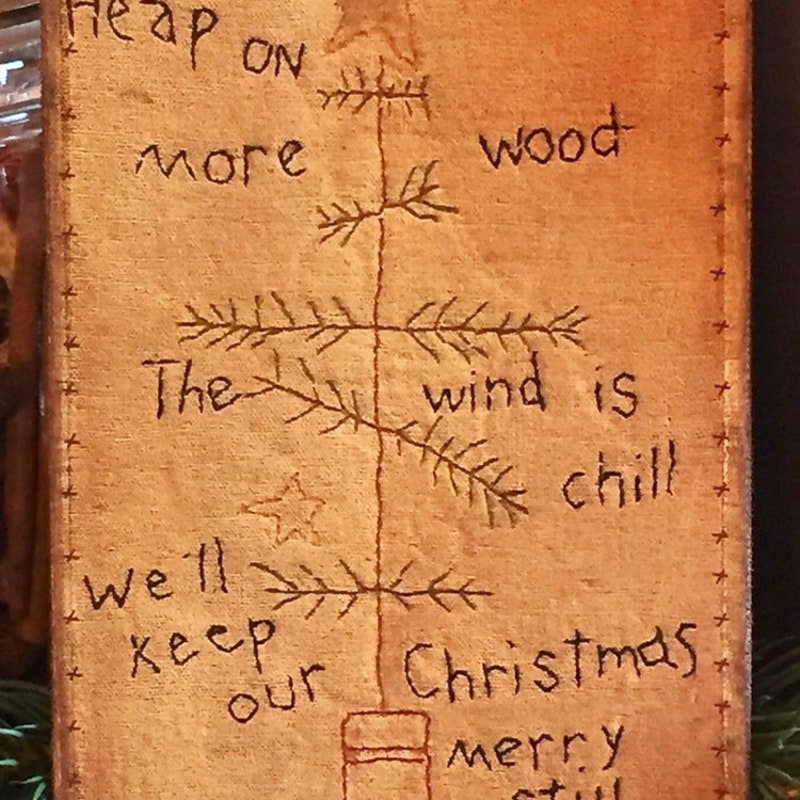 Heap ON
more wood
The wind is
chill
we'll
keep
our Christmas
merry
still